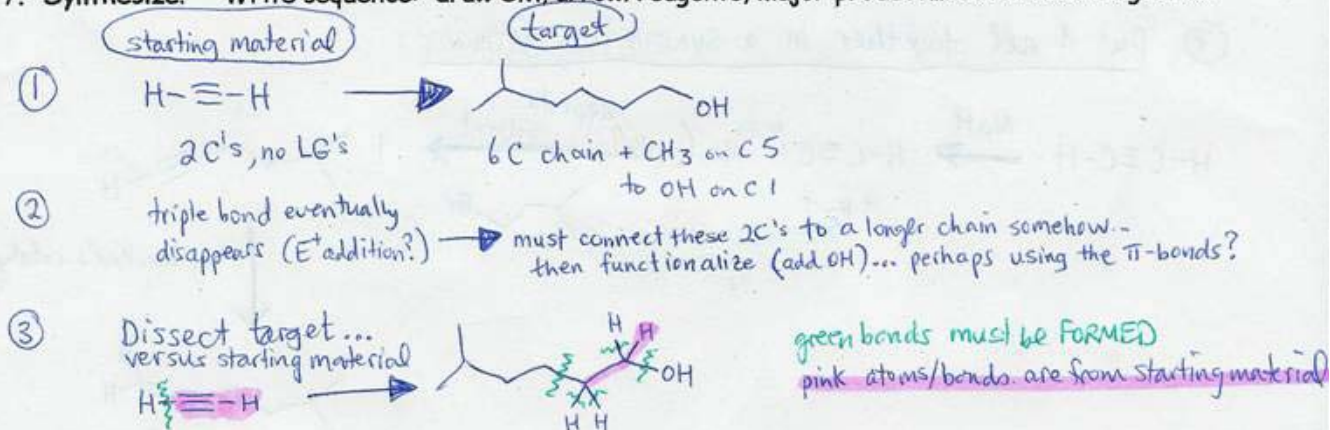 7. Synthesize. Write sequence: draw SM, arrow reagents, major product
starting material
target
① H-≡-H
OH
2C's, no LG's
6C chain + CH3 on C5
to OH on C1
② triple bond eventually
disappears (E+ addition?)
must connect these 2C's to a longer chain somehow...
then functionalize (add OH)... perhaps using the π-bonds?
③ Dissect target...
versus starting material
H-≡-H
H H
OH
H H
green bonds must be FORMED
pink atoms/bonds are from starting material